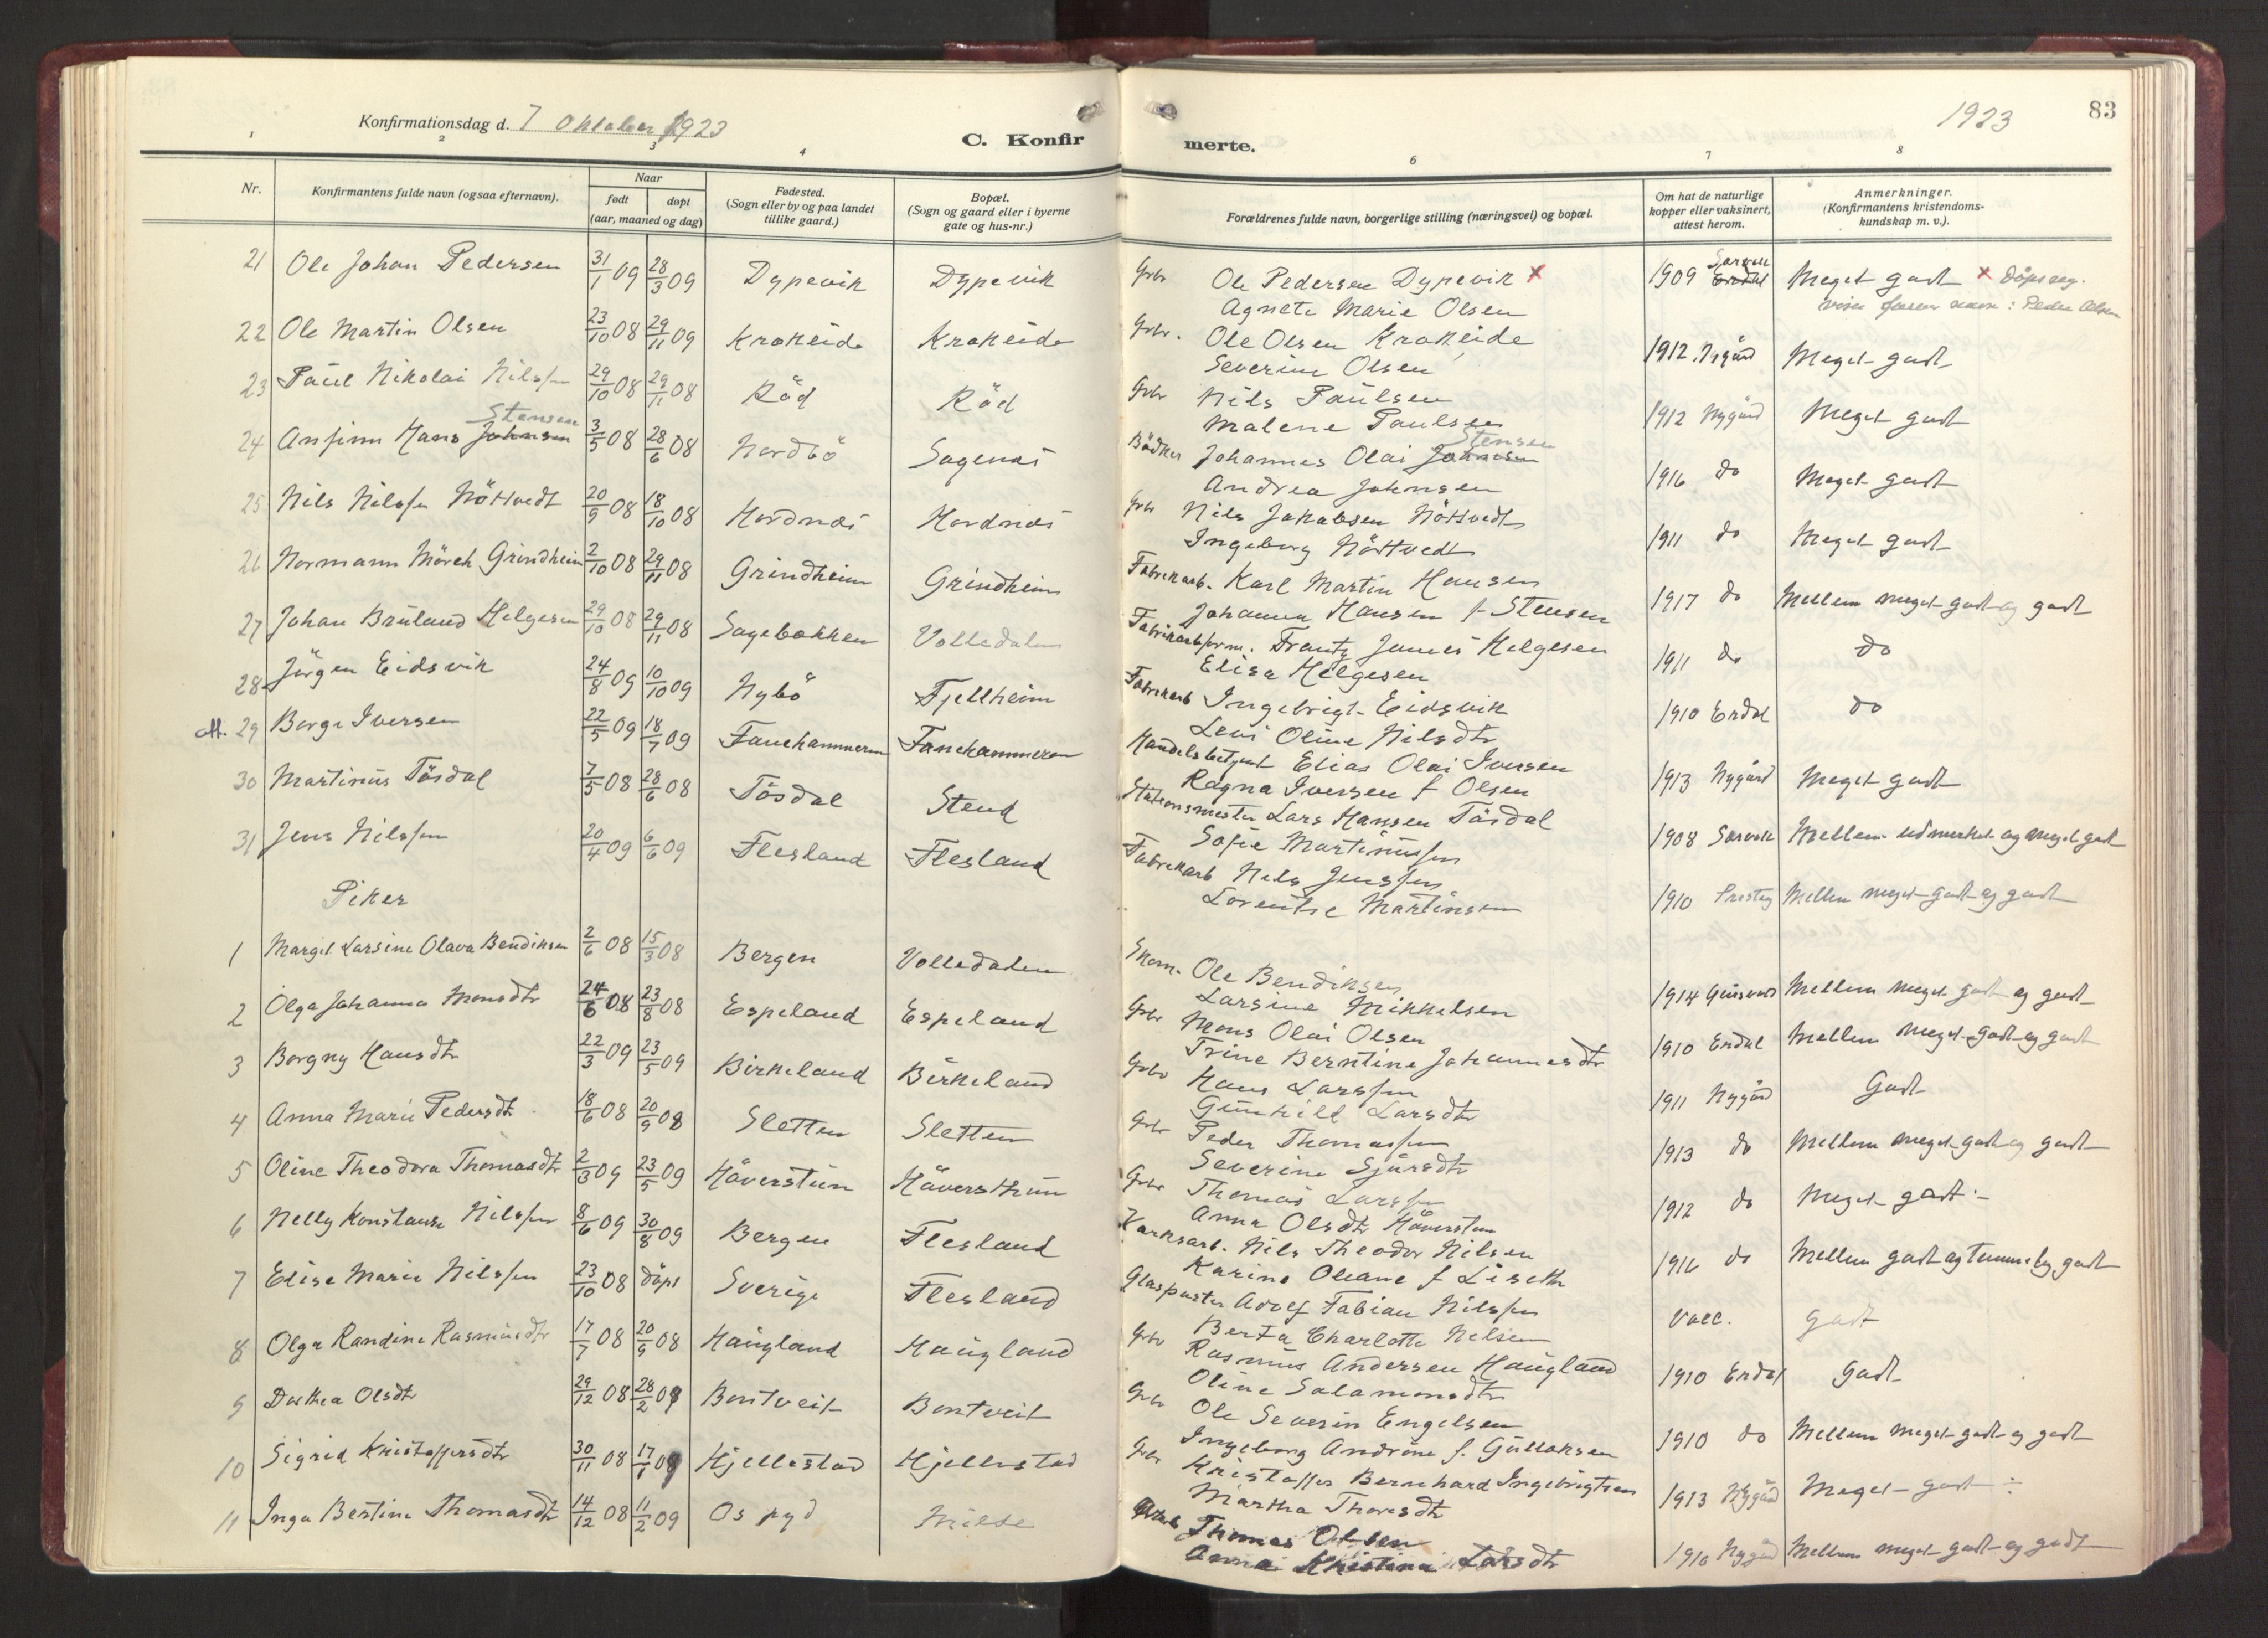 Konfirmationsdag d. 7 Oktober 1923
C. Konfir
merte.
1923
83
1 2 3 4 6 7 8
Nr.
Konfirmantens fulde navn (ogsaa efternavn).
Naar
født døpt
(aar, maaned og dag)
Fødested.
(Sogn eller by og paa landet
tillike gaard.)
Bopæl.
(Sogn og gaard eller i byerne
gate og hus-nr.)
Forældrenes fulde navn, borgerlige stilling (næringsvei) og bopæl.
Om hat de naturlige
kopper eller vaksinert,
attest herom.
Anmerkninger.
(Konfirmantens kristendoms-
kundskap m. v.).
21 Ole Johan Pedersen 31/1 09 28/3 09 Dypevik Dypevik Grbr Ole Pedersen Dypevik x 1909 Meget godt x Döpsreg.
Agnete Marie Olsen
22 Ole Martin Olsen 23/10 08 29/11 09 Krokeide Krokeide Grbr. Ole Olsen Krokeide 1912 Nygård Meget godt
Severine Olsen
23 Paul Nikolai Nilssen 29/10 08 29/11 08 Röd Röd Grbr Nils Paulsen 1912 Nygård Meget godt
Malene Paulsen
Stensen
24 Ansfinn Hans Johnsen 3/5 08 28/6 08 Nordbö Sagenes Bödker Johannes Olai Johnsen 1916 do Meget godt
Stensen
Andrea Johnsen
25 Nils Nilssen Nöttvedt 20/9 08 18/10 08 Hordnes Hordnes Grbr Nils Jakobsen Nöttvedt 1911 do Meget godt
Ingeborg Nöttvedt
26 Normann Mörch Grindheim 2/10 08 29/11 08 Grindheim Grindheim Fabrikarb. Karl Martin Hansen 1917 do Mellem meget godt og godt
Johanna Hansen f Stensen
27 Johan Bruland Helgesen 29/10 08 29/11 08 Sagebakken Volledalen Fabrikarbform. Frantz James Helgesen 1911 do do
Elisa Helgesen
28 Jörgen Eidsvik 24/8 09 10/10 09 Nybö Fjellheim Fabrikarb Ingebrigt Eidsvik 1910 Erdal do
Levi Oline Nilsdtr
att. 29 Borge Iversen 22/5 09 18/7 09 Fanehammeren Fanehammeren Handelsbetjent Elias Olai Iversen 1913 Nygård Meget godt
Ragna Iversen f Olsen
30 Martinus Tösdal 7/5 08 28/6 08 Tösdal Stend Stationsmester Lars Hansen Tösdal 1908 Mellem udmerket og meget godt
Sofie Martinussen
31 Jens Nilssen 20/4 09 6/6 09 Flesland Flesland Fabrikarb Nils Jenssen 1910 Mellem meget godt og godt
Lorentse Martinsen
Piker
1 Margit Larsine Olava Bendiksen 2/6 08 15/3 08 Bergen Volledalen Skom. Ole Bendiksen 1914 Mellem meget godt og godt
Larsine Mikkelsen
2 Olga Johanna Monsdtr 24/6 08 23/8 08 Espeland Espeland Grbr Mons Olai Olsen 1910 Erdal Mellem meget godt og godt
Trine Berntine Johannesdtr
3 Borgny Hansdtr 22/3 09 23/5 09 Birkeland Birkeland Grbr Hans Larssen 1911 Nygård Godt
Gunhild Larsdtr
4 Anna Marie Pedersdtr. 18/6 08 20/9 08 Sletten Sletten Grbr Peder Thomassen 1913 do Mellem meget godt og godt
Severine Sjursdtr
5 Oline Theodora Thomasdtr 2/3 09 23/5 09 Häverstuen Häverstuen Grbr Thomas Larssen 1912 do Meget godt
Anna Olsdtr Häverstuen
6 Nelly Konstanse Nilssen 8/6 09 30/8 09 Bergen Flesland Verksarb. Nils Theodor Nilsen 1916 do Mellem godt og temmelig godt
Karine Oleane f Liseth
7 Elise Marie Nilssen 23/10 08 döpt Sverige Flesland Glaspuster Adolf Fabian Nilssen vacc. Godt
Berta Charlotte Nilsen
8 Olga Randine Rasmusdtr 17/7 08 20/9 08 Haugland Haugland Grbr Rasmus Andersen Haugland 1910 Erdal Godt
Oline Salamonsdtr
9 Dorthea Olsdtr 29/12 08 28/2 09 Bontveit Bontveit Grbr Ole Severin Engelsen 1910 do Mellem meget godt og godt
Ingeborg Andrine f. Gullaksen
10 Sigrid Kristoffersdtr 30/11 08 17/1 09 Hjellestad Hjellestad Grbr Kristoffer Bernhard Ingebrigtsen 1913 Nygård Meget godt
Martha Thoresdtr
11 Inga Bertine Thomasdtr 14/12 08 11/2 09 Os Milde Thomas Olsen 1910 Nygård Mellem meget godt og godt
Anna Kristina Larsdtr